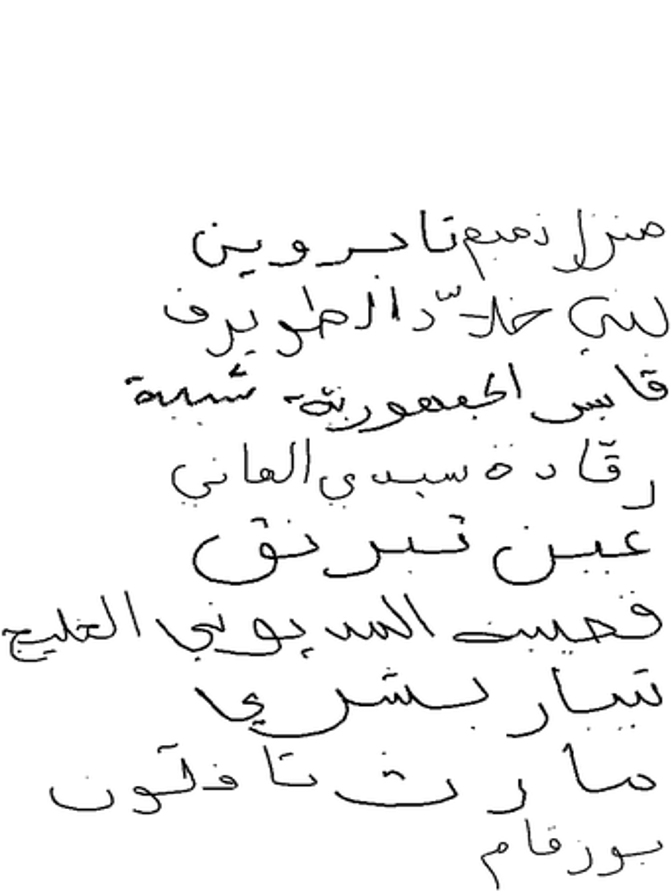 منزل تميم تاجروين
لبنى خلاّد الطويرف
قابس الجمهوريّة شبيبة
رقّادة سيدي الهاني
عين تبرنق
قصيبة المديوني الخليج
تيبار بشري
مارث تافلّون
بورقام